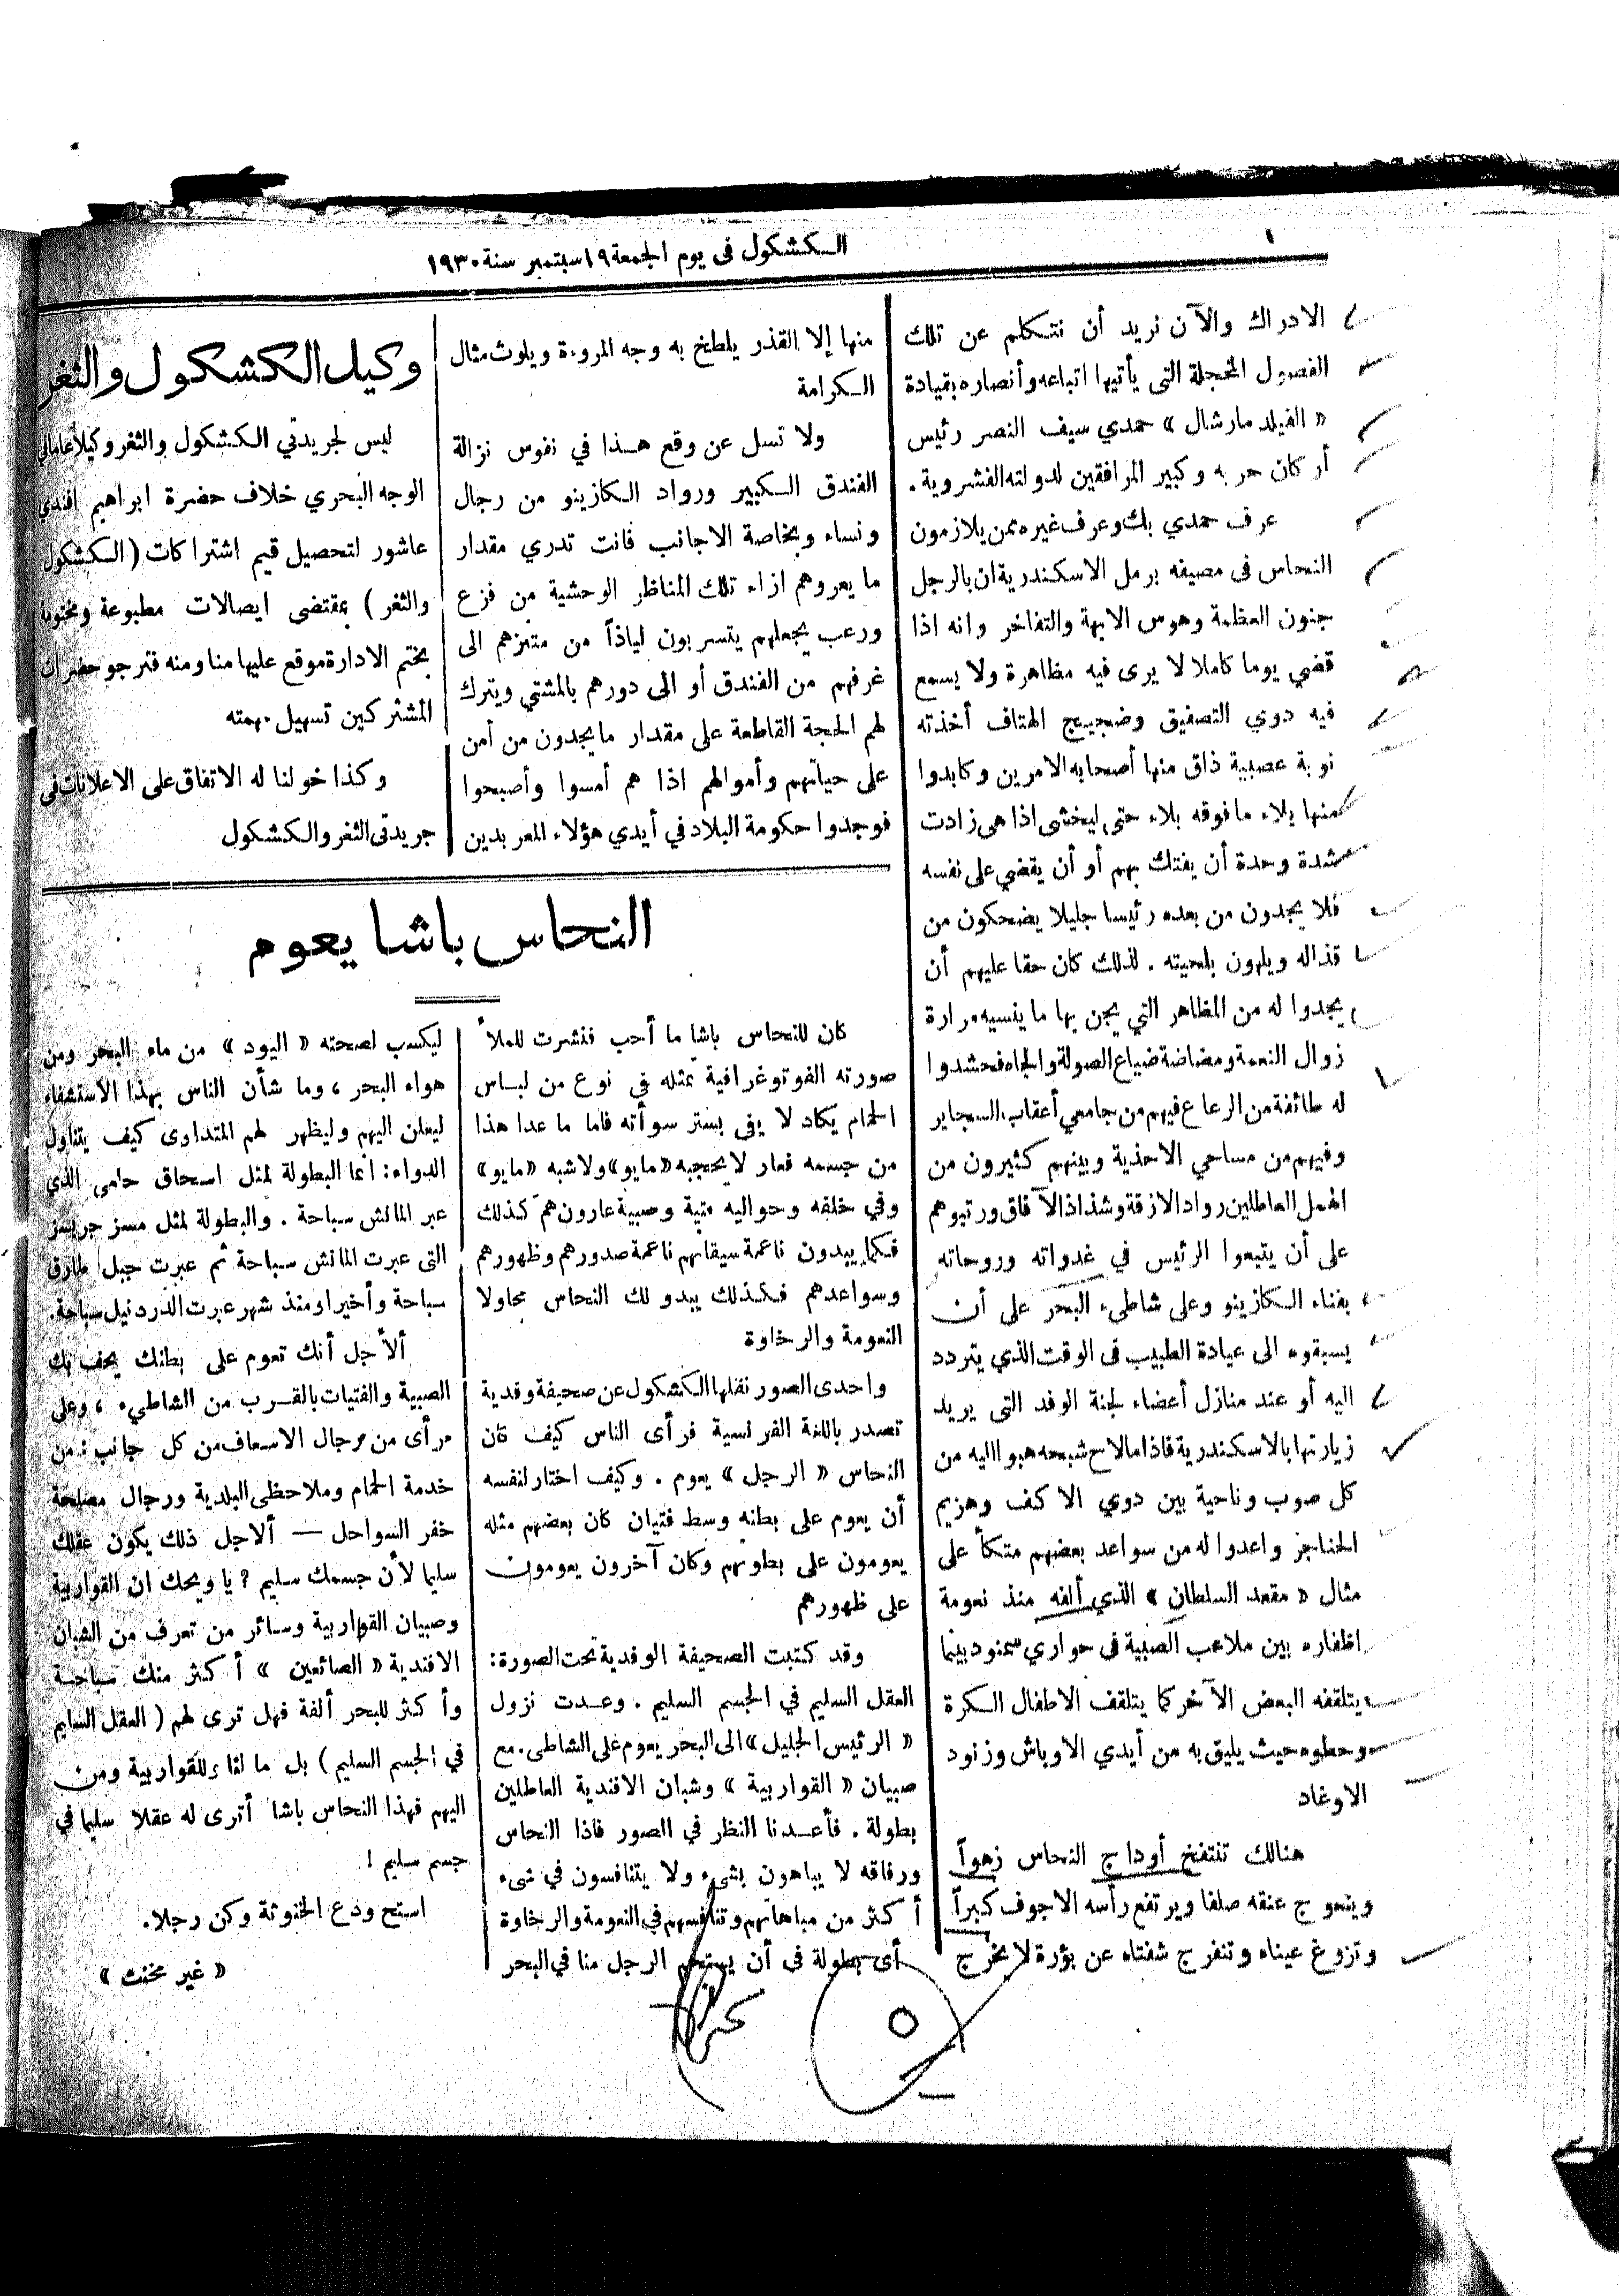 الكشكول فى يوم الجمعة ١٩ سبتمبر سنة ١٩٣٠
الادراك والآن نريد أن نتكلم عن تلك
الفصول المخجلة التى يأتيها اتباعه وأنصاره بقيادة
« الفيلد مارشال » حمدي سيف النصر رئيس
أركان حربه وكبير المرافقين لدولته الفشروية .
عرف حمدي بك وعرف غيره ممن يلازمون
النحاس فى مصيفه برمل الاسكندرية ان بالرجل
جنون العظمة وهوس الابهة والتفاخر وانه اذا
قضي يوما كاملا لا يرى فيه مظاهرة ولا يسمع
فيه دوي التصفيق وضجيج الهتاف أخذته
نوبة عصبية ذاق منها أصحابه الامرين وكابدوا
منها بلاء ما فوقه بلاء حتى ليخشى اذا هى زادت
شدة وحدة أن يفتك بهم أو أن يقضي على نفسه
فلا يجدون من بعده رئيسا جليلا يضحكون من
قذاله ويلهون بلحيته . لذلك كان حقا عليهم أن
يجدوا له من المظاهر التي يجن بها ما ينسيه مرارة
زوال النعمة ومضاضة ضياع الصولة والجاه فحشدوا
له طائفة من الرعاع فيهم من جامعي أعقاب السجاير
وفيهم من مساحي الاحذية وبينهم كثيرون من
الهمل العاطلين رواد الازقة وشذاذ الآفاق ورتبوهم
على أن يتبعوا الرئيس في غدواته وروحاته
بفناء الكازينو وعلى شاطىء البحر على أن
يسبقوه الى عيادة الطبيب فى الوقت الذي يتردد
اليه أو عند منازل أعضاء لجنة الوفد التى يريد
زيارتها بالاسكندرية فاذا مالاح شبحه هبوا اليه من
كل صوب وناحية بين دوي الاكف وهزيم
الحناجر واعدوا له من سواعد بعضهم متكأ على
مثال « مقعد السلطان » الذي ألفه منذ نعومة
اظفاره بين ملاعب الصبية فى حواري سمنود بينما
يتلقفه البعض الآخر كما يتلقف الاطفال الكرة
وحطوه حيث يليق به من أيدي الاوباش وزنود
الاوغاد
هنالك تنتفخ أوداج النحاس زهواً
وينعوج عنقه صلفا ويرتفع رأسه الاجوف كبراً
وتزوغ عيناه وتنفرج شفتاه عن بؤرة لا يخرج
منها إلا القذر يلطخ به وجه المروءة ويلوث مثال
الكرامة
ولا تسل عن وقع هذا في نفوس نزالة
الفندق الكبير ورواد الكازينو من رجال
ونساء وبخاصة الاجانب فانت تدري مقدار
ما يعروهم ازاء تلك المناظر الوحشية من فزع
ورعب يجعلهم يتسربون لياذاً من متنزهم الى
غرفهم من الفندق أو الى دورهم بالمشتي ويترك
لهم الحجة القاطعة على مقدار ما يجدون من أمن
على حياتهم وأموالهم اذا هم أمسوا وأصبحوا
فوجدوا حكومة البلاد في أيدي هؤلاء المعربدين
وكيل الكشكول والثغر
ليس لجريدتي الكشكول والثغر وكيلا عاما في
الوجه البحري خلاف حضرة ابراهيم افندي
عاشور لتحصيل قيم اشتراكات ( الكشكول
والثغر ) بمقتضى ايصالات مطبوعة ومختومة
بختم الادارة موقع عليها منا ومنه فنرجو حضرات
المشتركين تسهيل مهمته
وكذا خولنا له الاتفاق على الاعلانات فى
جريدتى الثغر والكشكول
النحاس باشا يعوم
كان للنحاس باشا ما أحب فنشرت للملأ
صورته الفوتوغرافية تمثله في نوع من لباس
الحمام يكاد لا يفى بستر سوأته فاما ما عدا هذا
من جسمه فعار لا يحجبه « مايو » ولا شبه « مايو »
وفي خلفه وحواليه فتية وصبية عارون هم كذلك
فكما يبدون ناعمة سيقانهم ناعمة صدورهم وظهورهم
وسواعدهم فكذلك يبدو لك النحاس محاولا
النعومة والرخاوة
واحدى الصور نقلها الكشكول عن صحيفة وفدية
تصدر باللغة الفرنسية فرأى الناس كيف كان
النحاس « الرجل » يعوم . وكيف اختار لنفسه
أن يعوم على بطنه وسط فتيان كان بعضهم مثله
يعومون على بطونهم وكان آخرون يعومون
على ظهورهم
وقد كتبت الصحيفة الوفدية تحت الصورة :
العقل السليم في الجسم السليم . وعدت نزول
« الرئيس الجليل » الى البحر يعوم على الشاطى . مع
صبيان « القواربية » وشبان الافندية العاطلين
بطولة . فأعدنا النظر في الصور فاذا النحاس
ورفاقه لا يباهون بشىء ولا يتنافسون في شىء
أكثر من مباهاتهم وتنافسهم في النعومة والرخاوة
أى بطولة فى أن يستحم الرجل منا في البحر
ليكسب لصحته « اليود » من ماء البحر ومن
هواء البحر ، وما شأن الناس بهذا الاستشفاء
ليعلن اليهم وليظهر لهم المتداوى كيف يتناول
الدواء : انما البطولة لمثل اسحاق حلمى الذي
عبر المانش سباحة . والبطولة لمثل مسز
التى عبرت المانش سباحة ثم عبرت جبل طارق
سباحة وأخيرا ومنذ شهر عبرت الدردنيل سباحة .
ألأجل أنك تعوم على بطنك يحف بك
الصبية والفتيات بالقرب من الشاطىء ، وعلى
مرأى من رجال الاسعاف من كل جانب : من
خدمة الحمام وملاحظى البلدية ورجال مصلحة
خفر السواحل — ألاجل ذلك يكون عقلك
سليما لأن جسمك سليم ؟ يا ويحك ان القواربية
وصبيان القواربية وسائر من تعرف من الشبان
الافندية « الصائعين » أكثر منك سباحة
وأكثر للبحر ألفة فهل ترى لهم ( العقل السليم
في الجسم السليم ) بل ما لنا وللقواربية ومن
اليهم فهذا النحاس باشا أترى له عقلا سليما في
جسم سليم !
استح ودع الخنوثة وكن رجلا .
« غير مخنث »